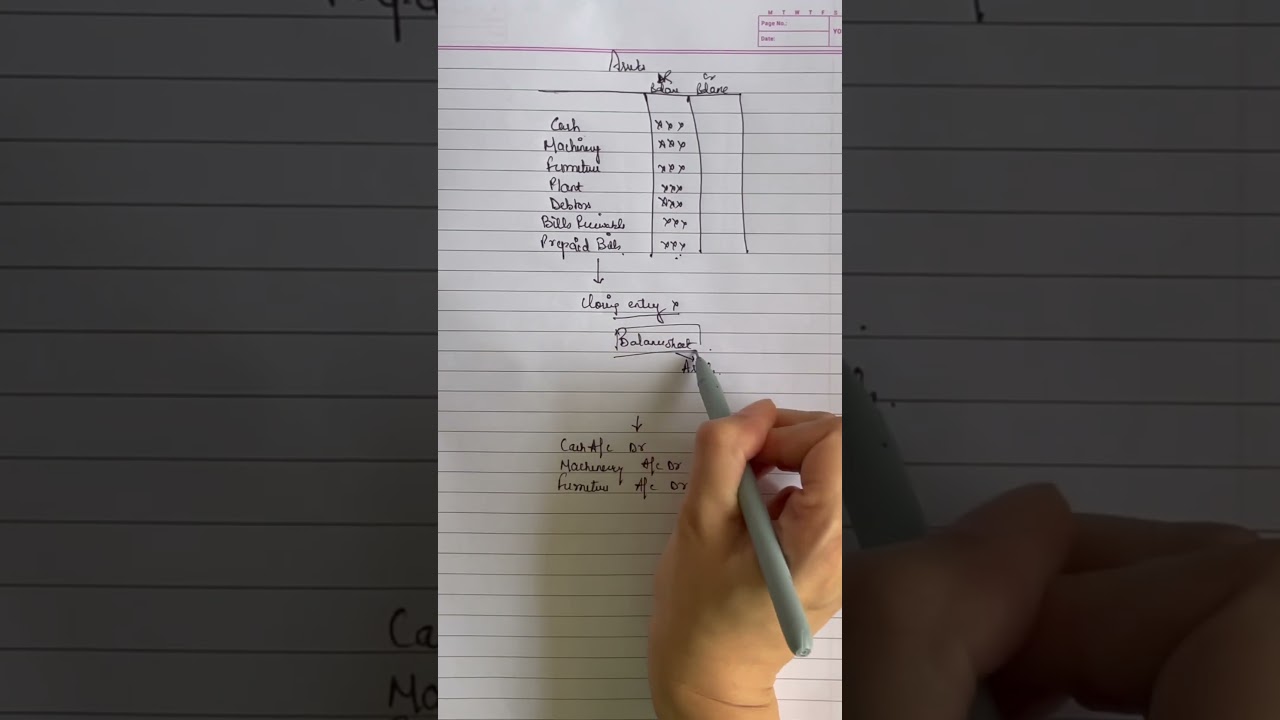 M T W T F S
Page No.:
Date:
YO
Assets
Dr Cr
Balance Balance
Cash xxx
Machinery xxx
Furniture xxx
Plant xxx
Debtors xxx
Bills Receivable xxx
Prepaid Bills. xxx
↓
Closing entry x
Balancesheet
↓
Cash A/c Dr
Machinery A/c Dr
Furniture A/c Dr
Ca
Ma